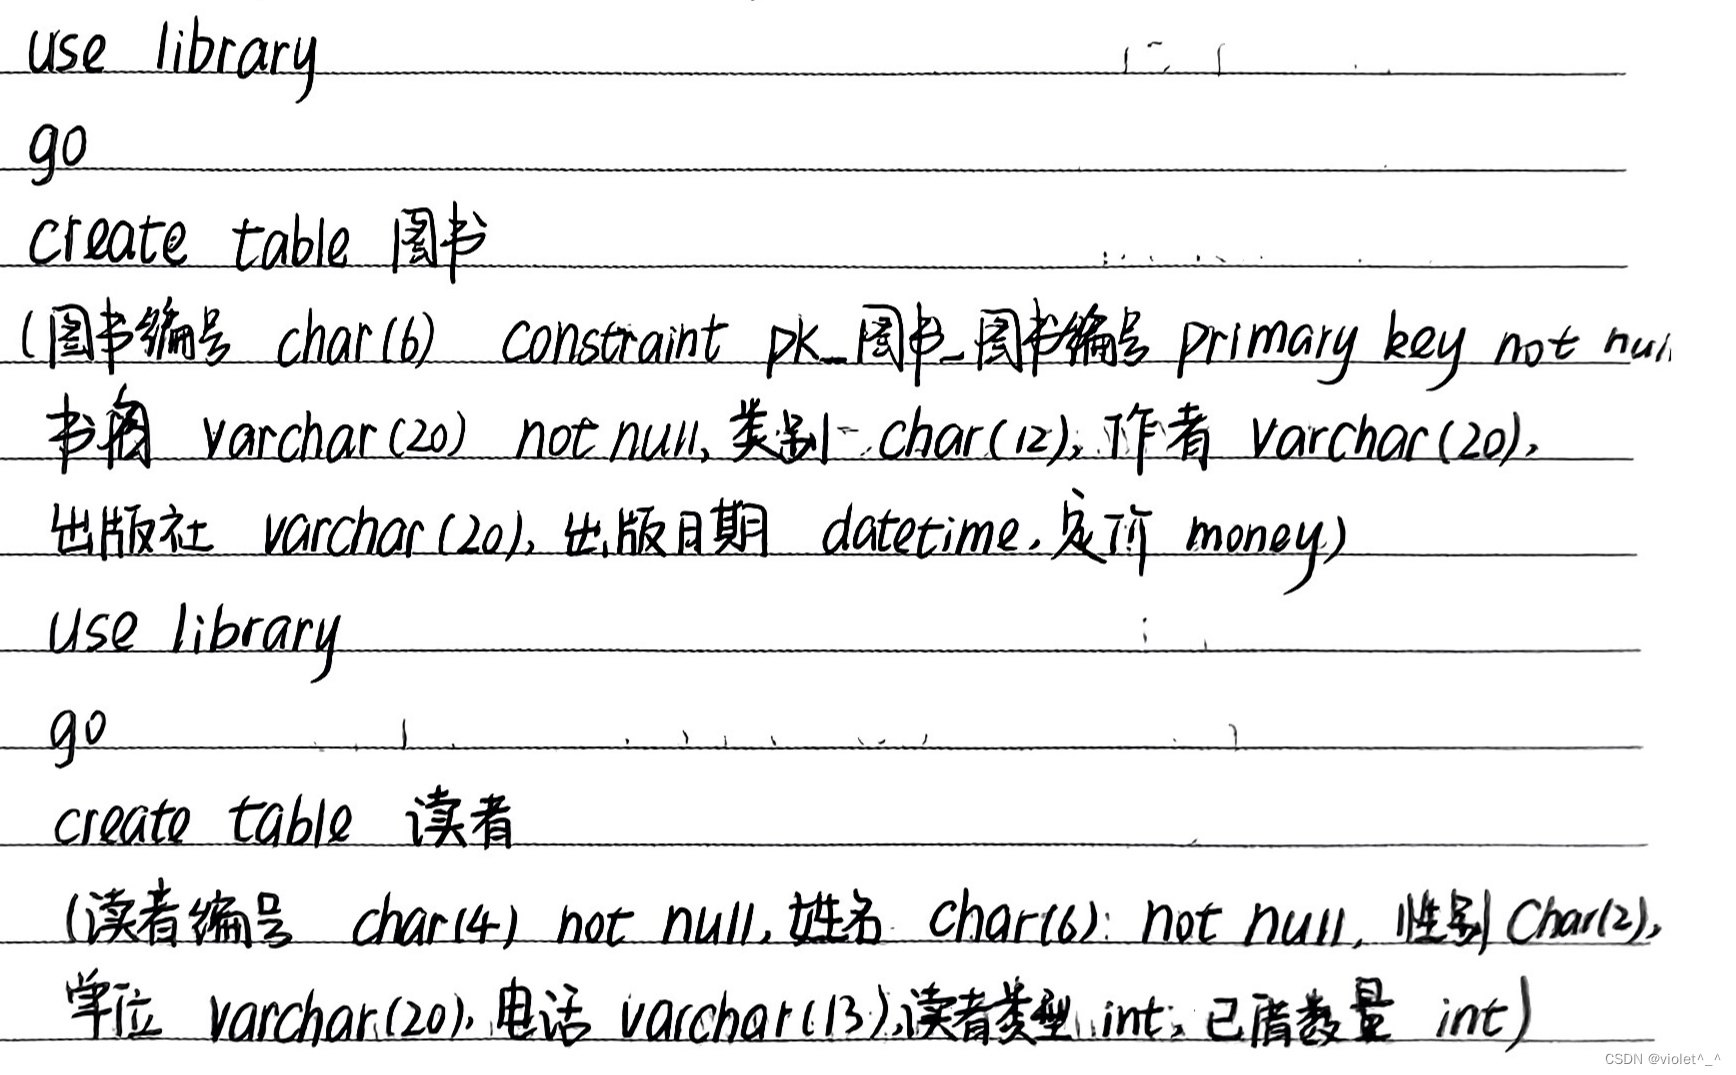 use library
go
create table 图书
(图书编号 char(6) constraint pk_图书_图书编号 primary key not nul
书名 varchar(20) not null, 类别 char(12), 作者 varchar(20),
出版社 varchar(20), 出版日期 datetime, 定价 money)
use library
go
create table 读者
(读者编号 char(4) not null, 姓名 char(6) not null, 性别 Char(2),
单位 varchar(20), 电话 varchar(13), 读者类型 int, 已借数量 int)
CSDN @violet^_^